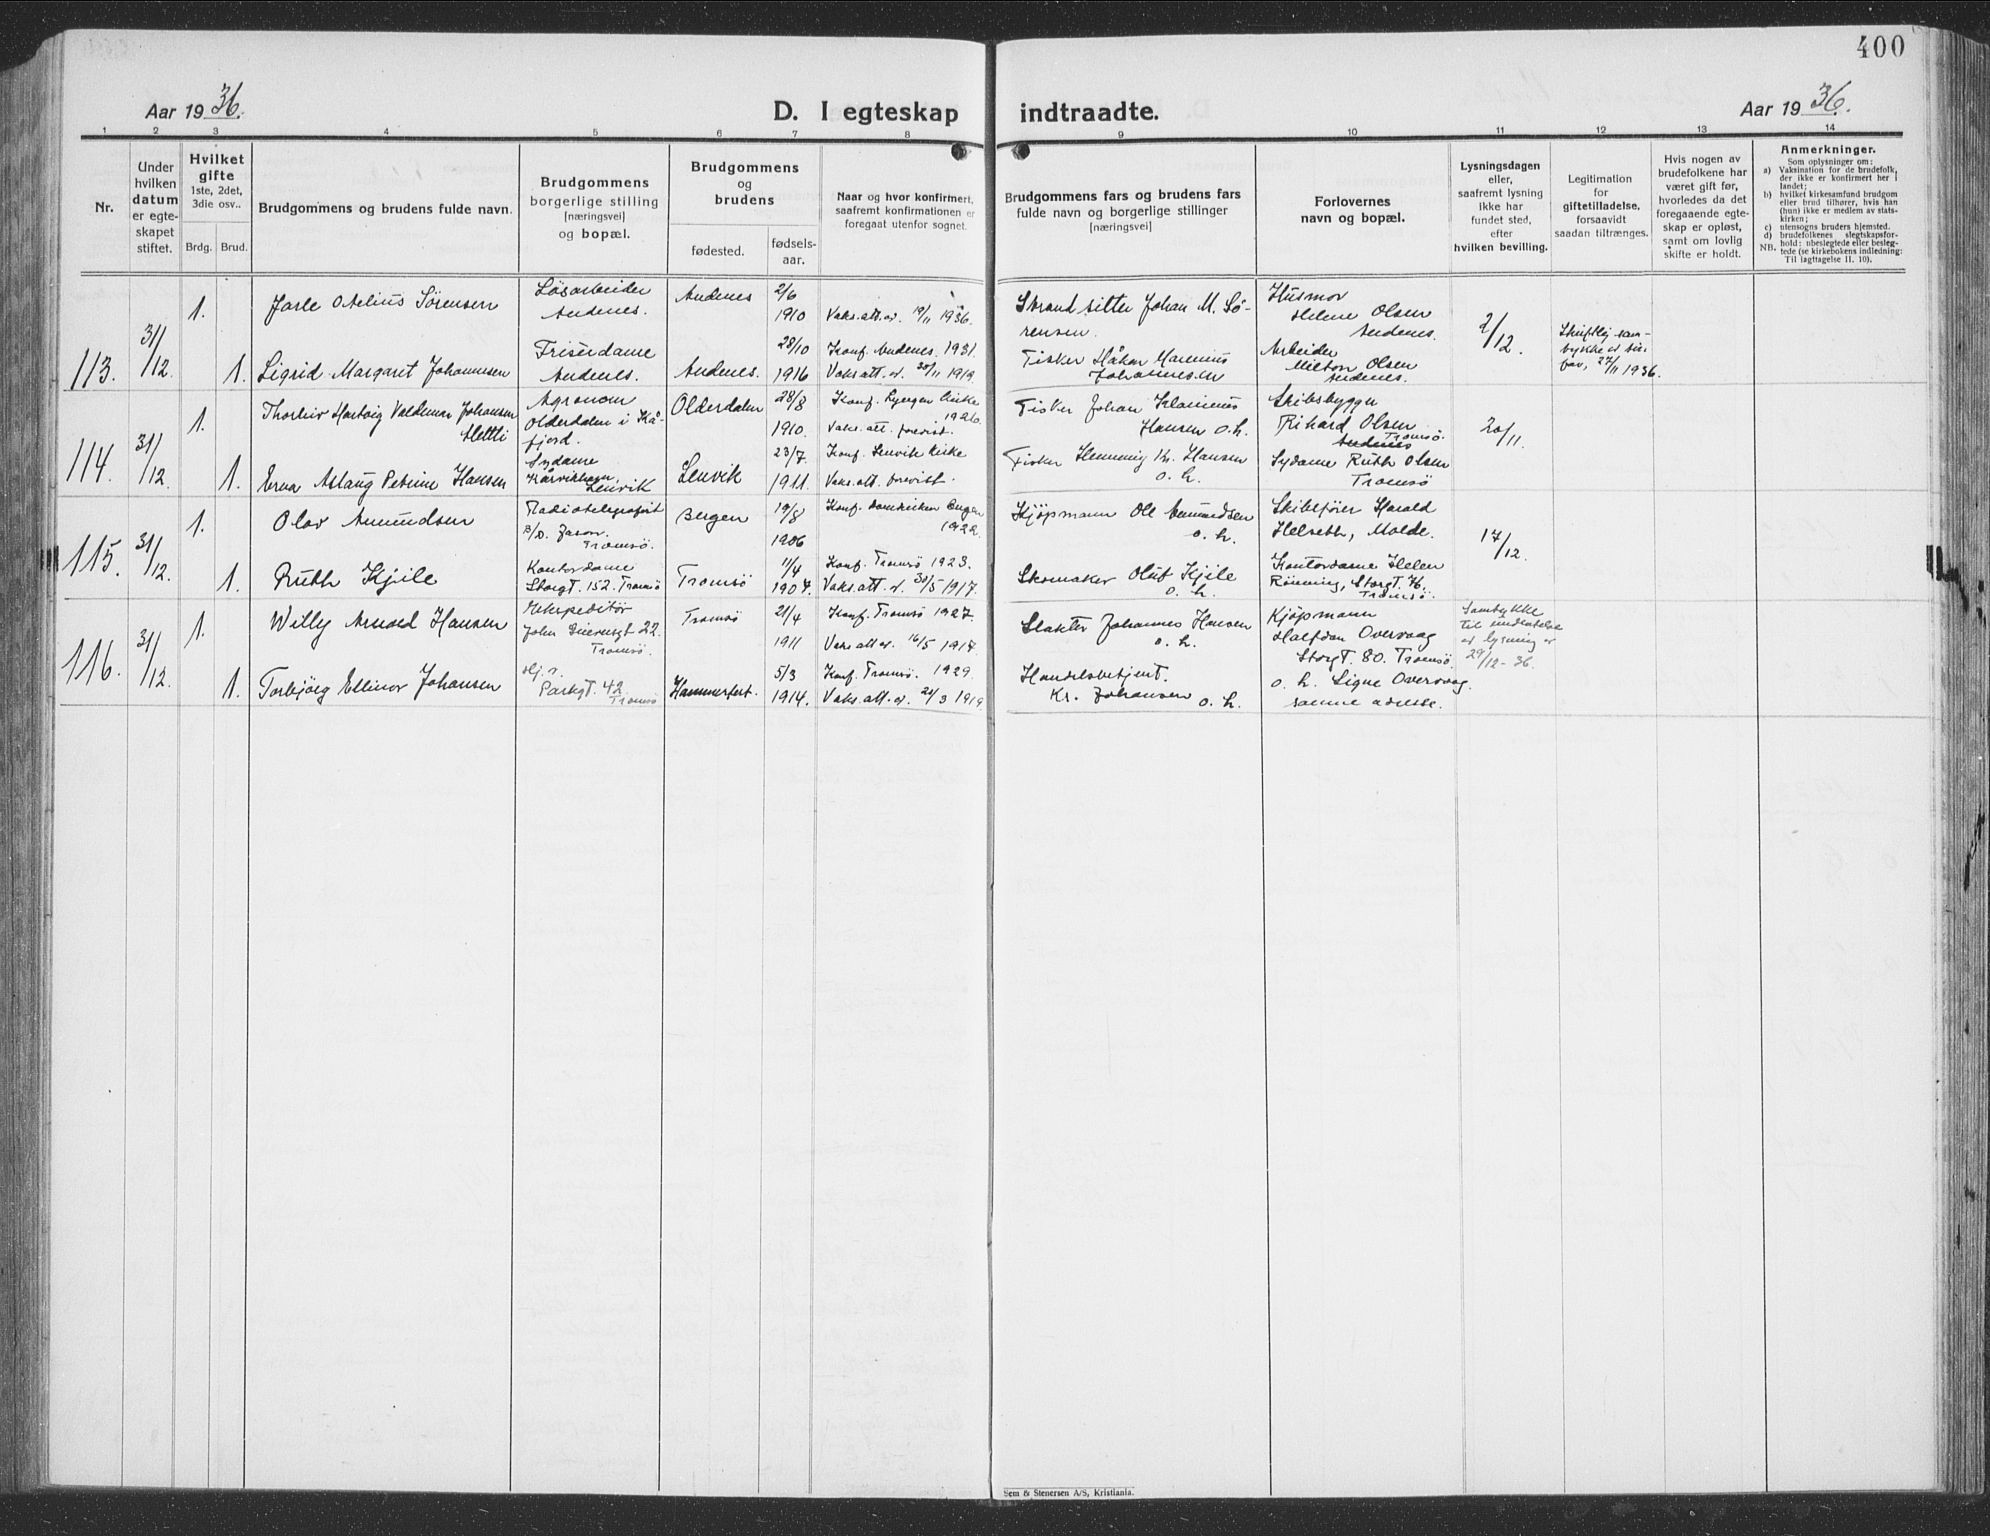 400
Aar 19 36.
D. I egteskap indtraadte.
Aar 19 36.
1 2 3 4 5 6 7 8 9 10 11 12 13 14
Nr.
Under
hvilken
datum
er egte-
skapet
stiftet.
Hvilket
gifte
1ste, 2det,
3die osv..
Brdg. Brud.
Brudgommens og brudens fulde navn.
Brudgommens
borgerlige stilling
(næringsvei)
og bopæl.
Brudgommens
og
brudens
fødested.
fødsels-
aar.
Naar og hvor konfirmert,
saafremt konfirmationen er
foregaat utenfor sognet.
Brudgommens fars og brudens fars
fulde navn og borgerlige stillinger
(næringsvei)
Forlovernes
navn og bopæl.
Lysningsdagen
eller,
saafremt lysning
ikke har
fundet sted,
efter
hvilken bevilling.
Legitimation
for
giftetilladelse,
forsaavidt
saadan tiltrænges.
Hvis nogen av
brudefolkene har
været gift før,
hvorledes da det
foregaaende egte-
skap er opløst,
samt om lovlig
skifte er holdt.
Anmerkninger.
Som oplysninger om:
a) Vaksination for de brudefolk,
der ikke er konfirmert her i
landet;
b) hvilket kirkesamfund brudgom
eller brud tilhører, hvis han
(hun) ikke er medlem av stats-
kirken;
c) utensogns bruders hjemsted.
d) brudefolkenes slegtskapsfor-
hold: ubeslegtede eller besleg-
NB. tede (se kirkebokens indledning:
Til iagttagelse II. 10).
113. 31/12
1. Jarle Otelius Sörensen
Løsarbeider
Andenes.
Andenes
2/6
1910
Vaks. att. av. 19/11 1936.
Strandsitter Johan M. Sö-
rensen.
Husmor
Helene Olsen
Andenes.
2/12
Skriftlig sam-
tykke av
far, 27/11 1936.
1. Sigrid Margaret Johannesen
Friserdame
Andenes.
Andenes.
28/10
1916
Konf. Andenes. 1931.
Vaks. att. d. 30/11 1919.
Fisker Håkon Marenius
Johannesen
Arbeider
Milton Olsen
Andenes.
114. 31/12
1. Thorleiv Hartvig Valdemar Johansen
Mettli
Agronom
Olderdalen i Kå-
fjord.
Olderdalen
28/8
1910.
Konf. Lyngen kirke
1926.
Vaks. att. forevist.
Fisker Johan Klaninus
Hansen o. h.
Skibsbygger
Rikard Olsen
Andenes Tromsö.
20/11.
1. Erna Aslaug Petrine Hansen
Sydame
Kårvikhavn,
Lenvik
Lenvik
23/7
1911.
Konf. Lenvik kirke
Vaks. att. forevist.
Fisker Henning Kr. Hansen
o. h.
Sydame Ruth Olsen
Tromsö
115. 31/12
1. Olav Amundsen
Radiotelegrafist
D/S. Jason.
Tromsö.
Bergen
19/8
1906
Konf. domkirken Bergen
1922.
Kjöpmann Ole Amundsen
o. h.
Skibsfører Harald
Helseth, Molde.
17/12.
1. Ruth Kjile
Kontordame
Storgt. 152. Tromsö
Tromsö
11/4
1907.
Konf. Tromsö 1923.
Vaks. att. d. 30/5 1917.
Skomaker Oluf Kjile
o. h.
Kontordame Helen
Rönning, Storgt. 76.
Tromsö.
116. 31/12
1. Willy Arnold Hansen
Ekspeditør
John Gieversgt 22.
Tromsö.
Tromsö
21/4
1911
Konf. Tromsö 1927.
Vaks att av. 16/5 1917.
Slakter Johannes Hansen
o. h.
Kjöpmann
Halfdan Overvaag
Storgt. 80. Tromsö.
Samtykke
til undlatelse
av lysning av
29/12-36.
1. Torbjörg Ellinor Johansen
Hj. ?
Parkgt. 42.
Tromsö
Hammerfest.
5/3
1914.
Konf. Tromsö. 1929.
Vaks. att. d. 21/3 1919.
Handelsbetjent.
Kr. Johansen o. h.
o. h. Signe Overvaag.
samme adresse.
Sem & Stenersen A/S, Kristiania.